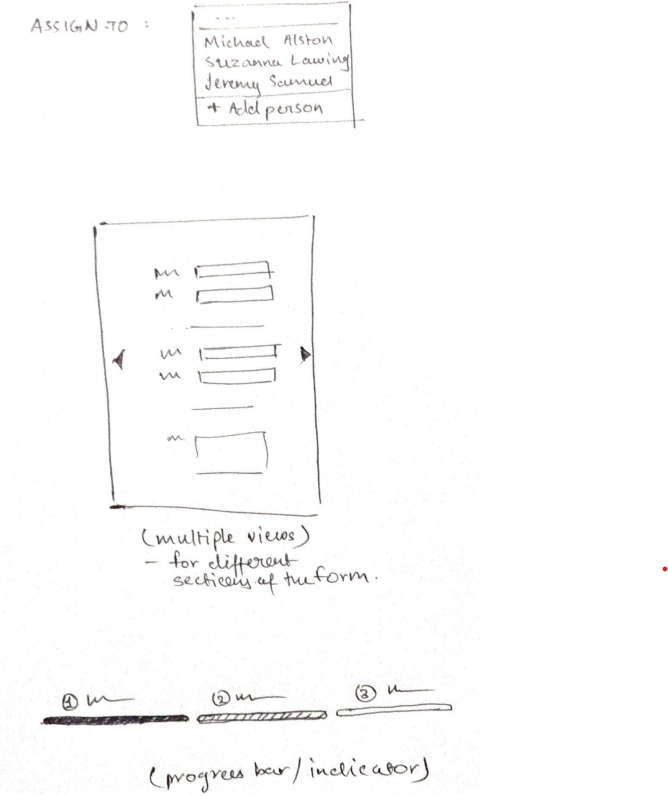 ASSIGN TO :
...
Michael Alston
Suzanna Lawing
Jeremy Samuel
+ Add person
(multiple views)
- for different
sections of the form.
① ② ③
(progress bar/indicator)